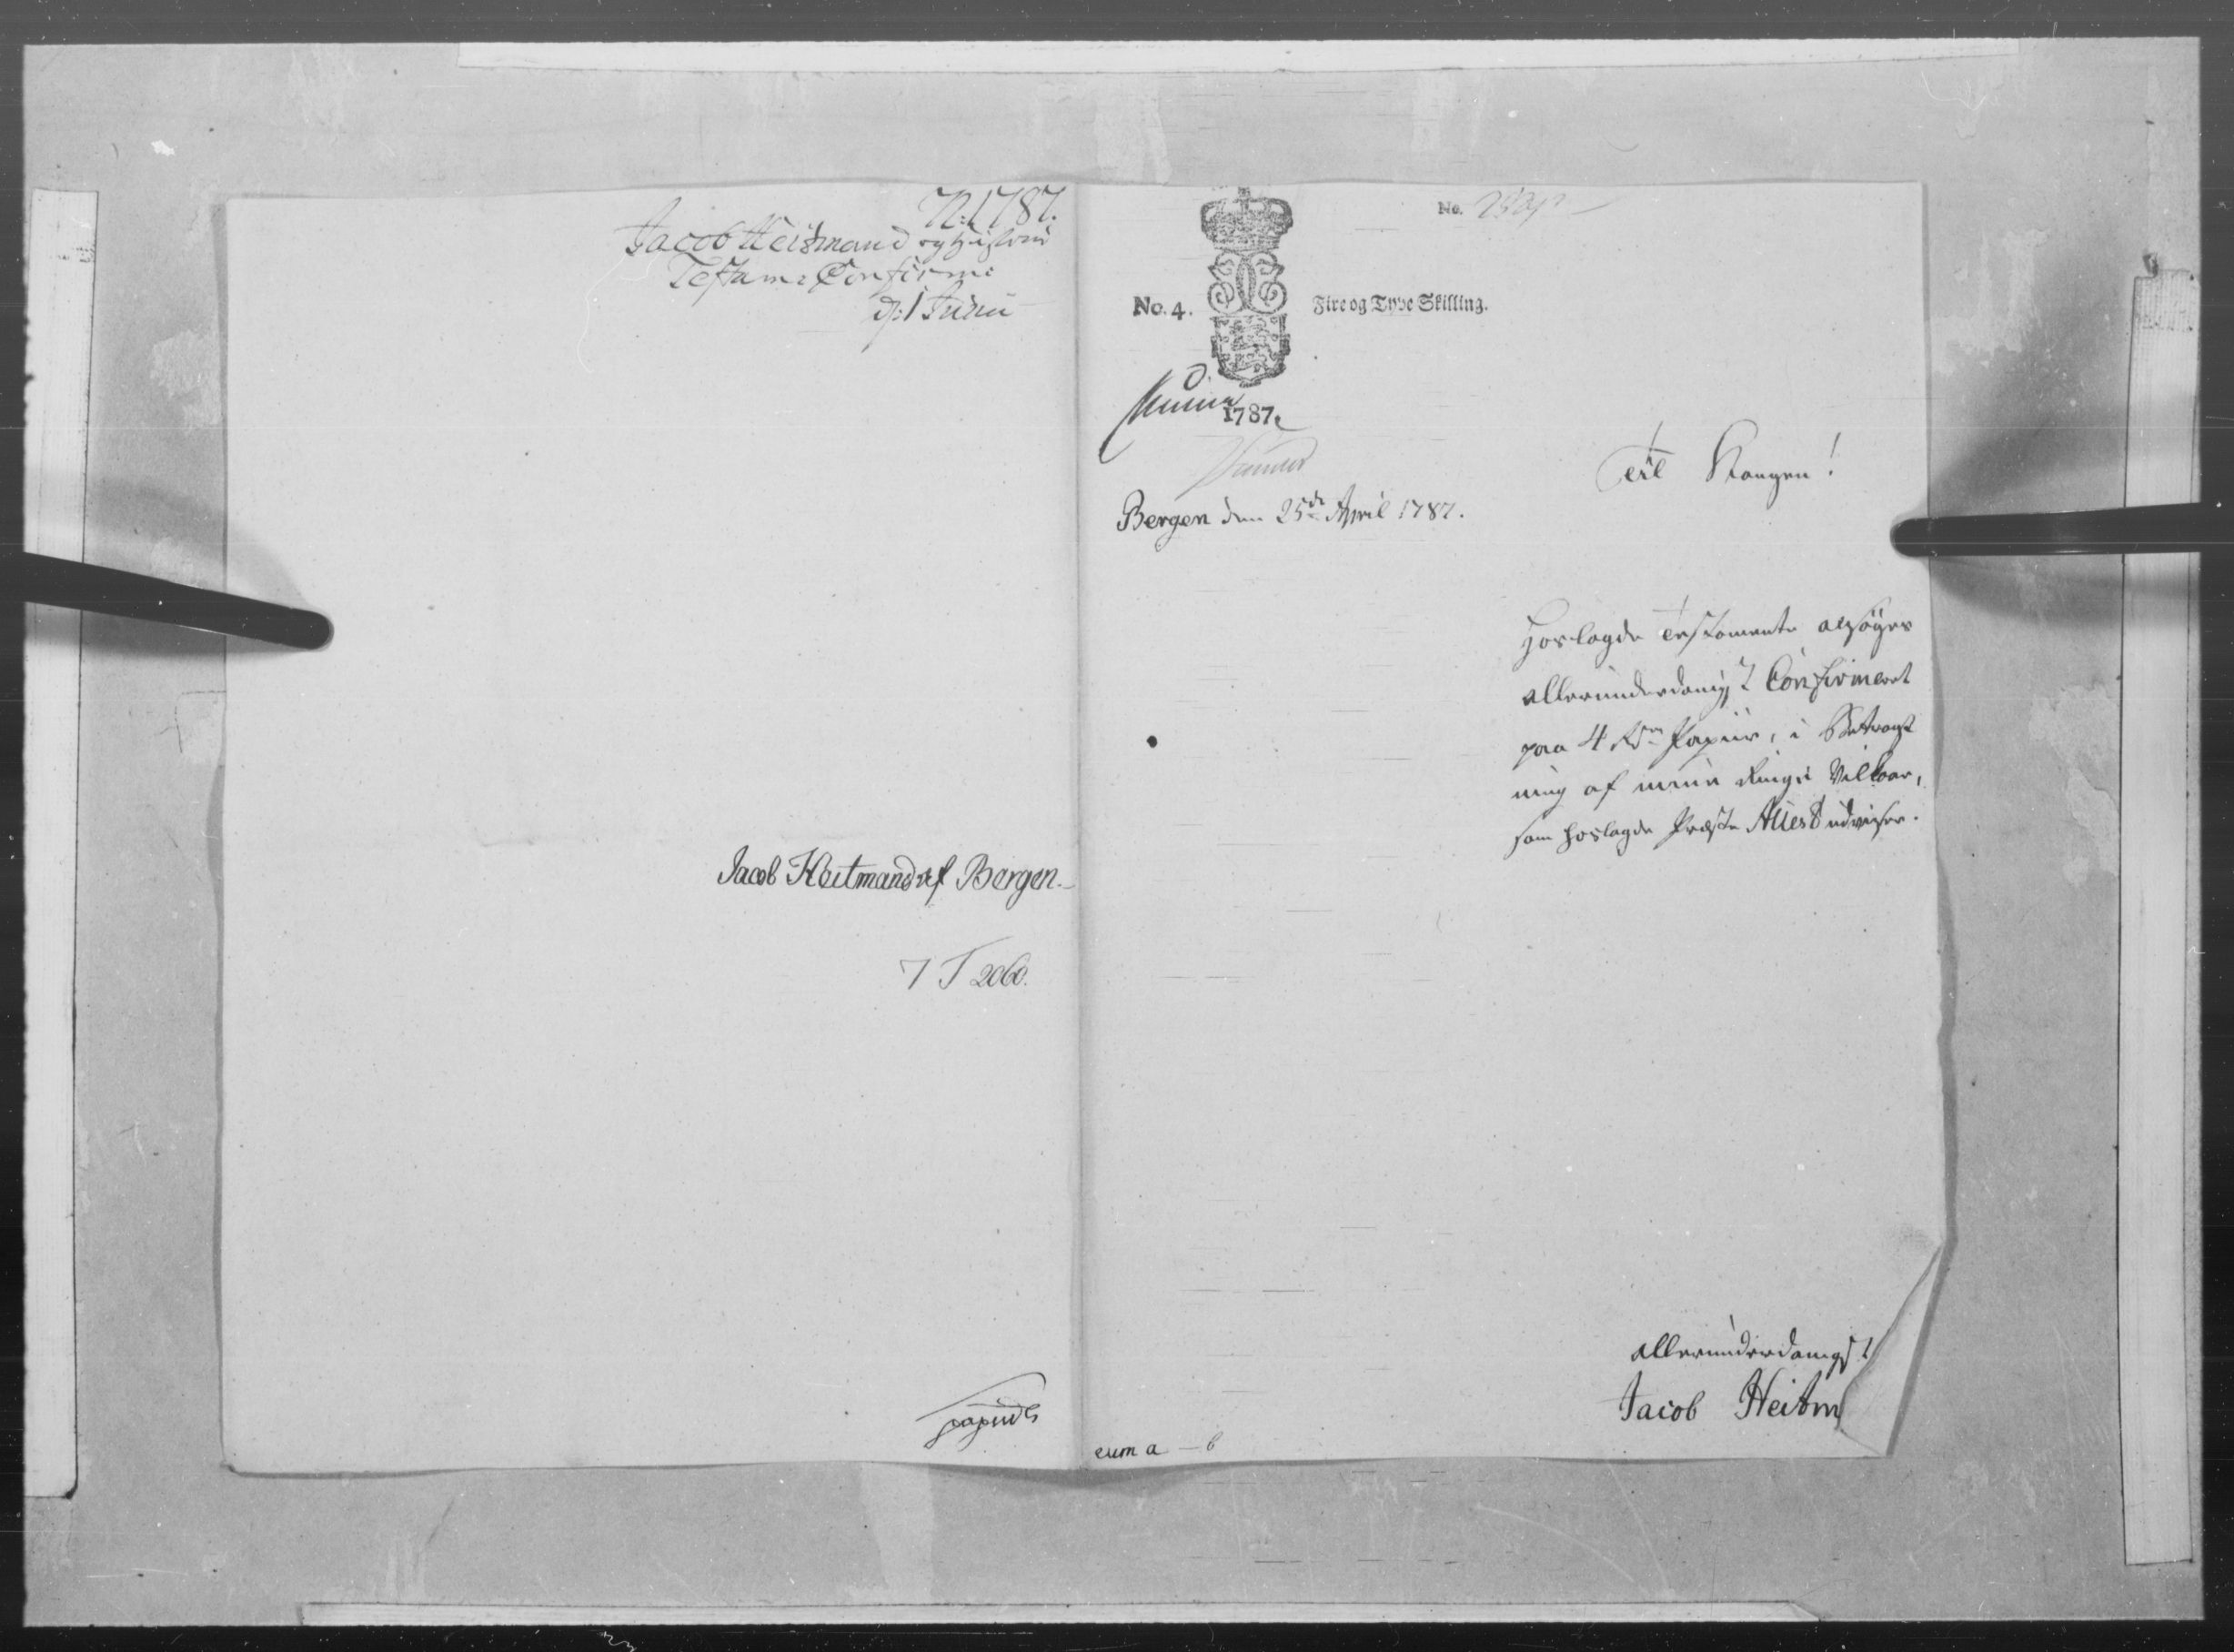 N: 1787.
Jacob Heitmand og Hustrues
Testam: Confirm:
d: 1 Junii
Jacob Heitmand af Bergen.
7 T 2060.
No.
No. 4.
Fire og Tyve Skilling.
1787.
Bergen den 25de April 1787.
Til Kongen!
Hoslagde Testamente ansøges
allerunderdanigst Confirmeret
paa 4 Rdrs Papiir, i Betragt
ning af min ringe Vilkaar,
som hoslagde Præste Attest udviser.
allerunderdanigst
Jacob Heitm
cum a - b